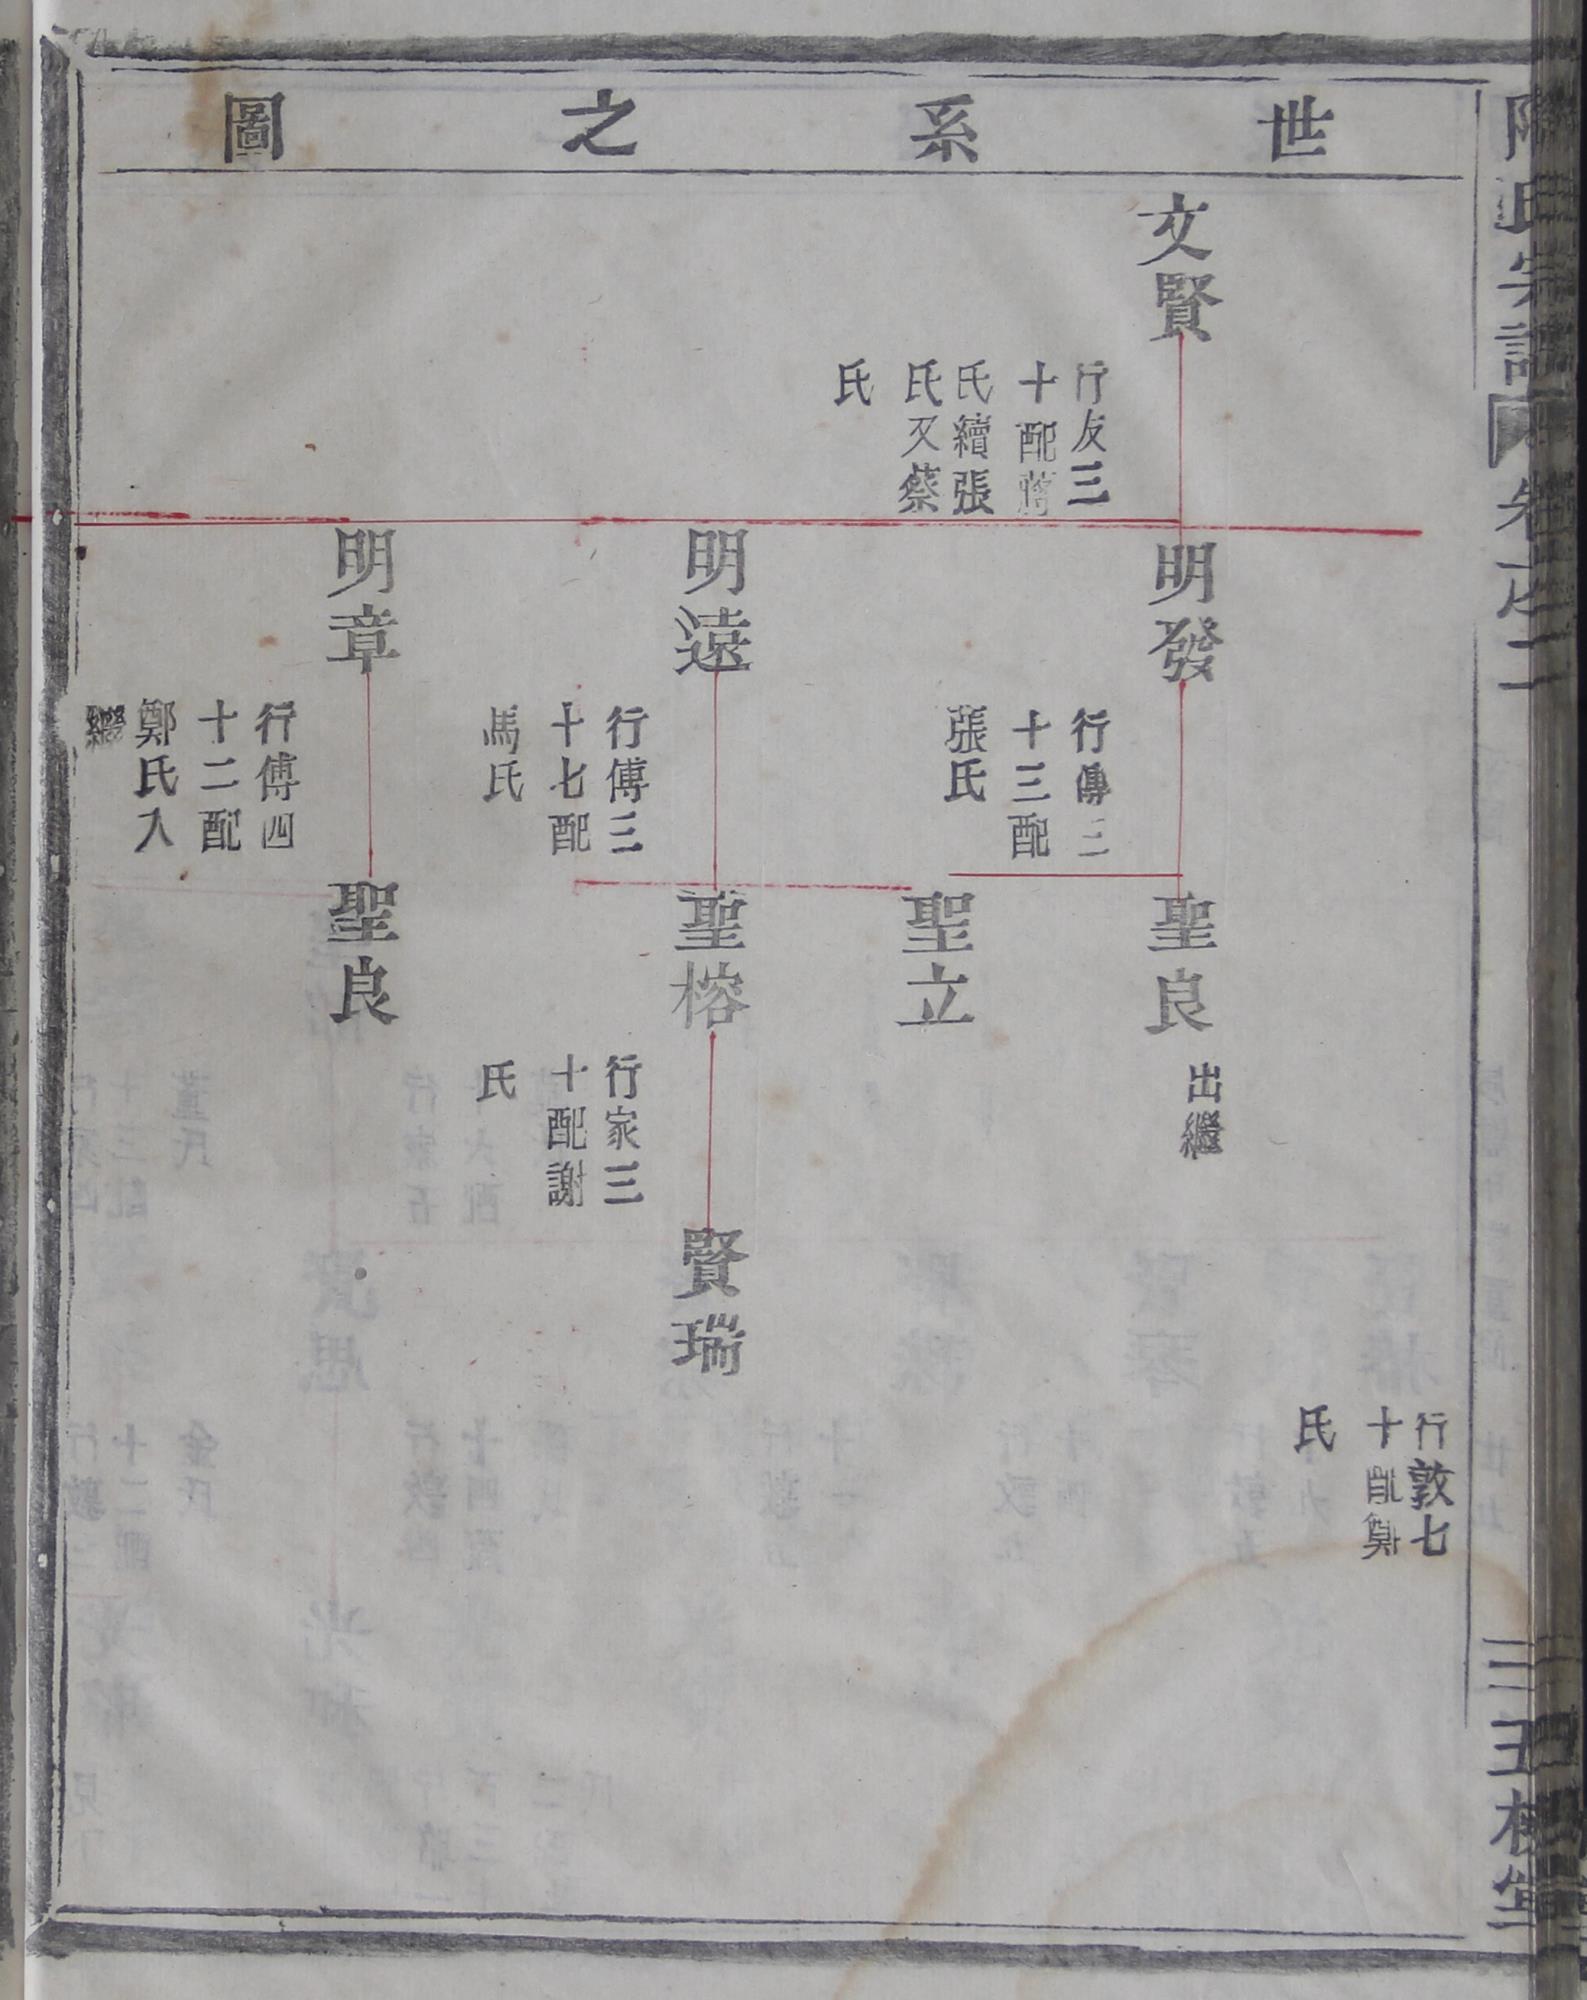 世系之圖
氏宗譜
卷之二
三
五桂堂
文賢
行友三
十配蔣
氏續張
氏又蔡
氏
明發
行傳三
十三配
張氏
明遠
行傳三
十七配
馬氏
明章
行傳四
十二配
鄭氏入
繼
聖良
出繼
聖立
聖榕
行家三
十配謝
氏
聖良
賢瑞
行敦七
十配
氏